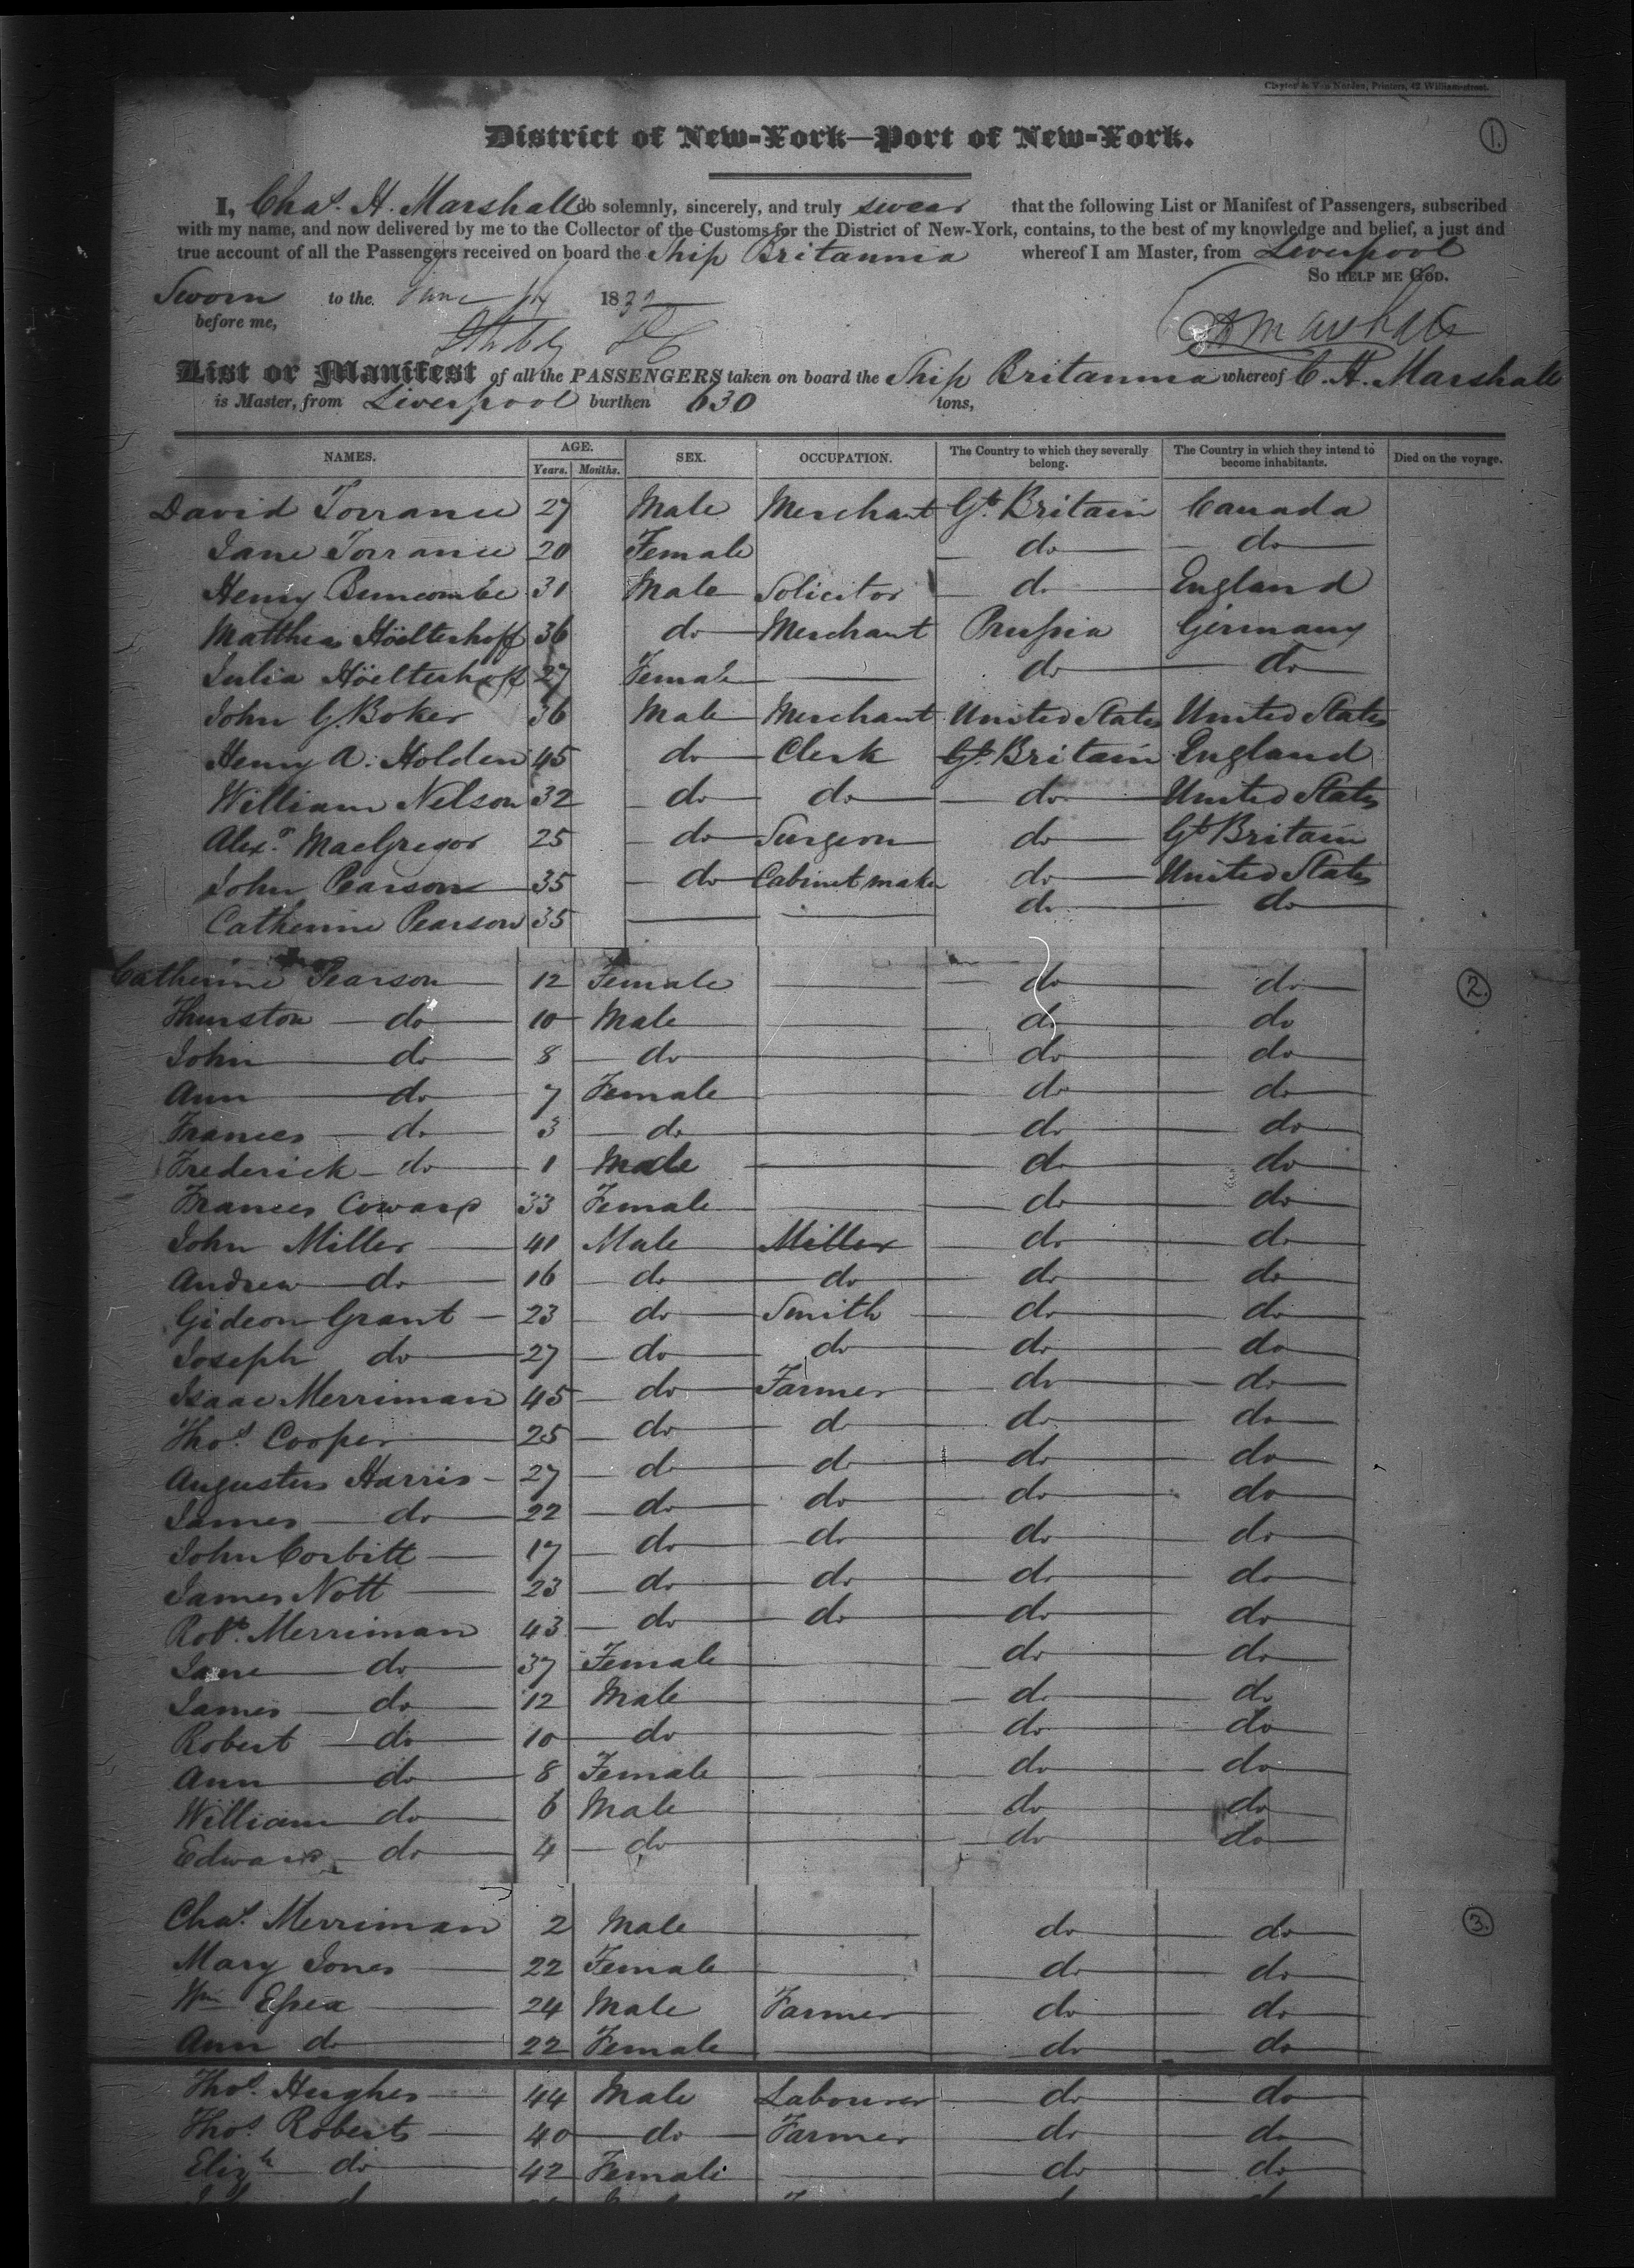 Clayton & Van Norden, Printers, 42 William-street.
District of New-York—Port of New-York.
1.
I, Chas. H. Marshall do solemnly, sincerely, and truly swear that the following List or Manifest of Passengers, subscribed
with my name, and now delivered by me to the Collector of the Customs for the District of New-York, contains, to the best of my knowledge and belief, a just and
true account of all the Passengers received on board the Ship Britannia whereof I am Master, from Liverpool
So help me God.
Sworn to the June 1832
before me,
C H Marshall
List or Manifest of all the PASSENGERS taken on board the Ship Britannia whereof C. H. Marshall
is Master, from Liverpool burthen 630 tons,
NAMES. AGE. Years. Months. SEX. OCCUPATION. The Country to which they severally belong. The Country in which they intend to become inhabitants. Died on the voyage.
David Torrance 27 Male Merchant Gt. Britain Canada
Jane Torrance 20 Female do do
Henry Buncombe 31 Male Solicitor do England
Matthias Höelterhoff 36 do Merchant Prussia Germany
Julia Höelterhoff 27 Female do do
John G. Boker 36 Male Merchant United States United States
Henry A. Holden 45 do Clerk Gt. Britain England
William Nelson 32 do do do United States
Alexr. MacGregor 25 do Surgeon do Gt Britain
John Pearson 35 do Cabinet maker do United States
Catherine Pearson 35 do do
Catherine Pearson 12 Female do do 2.
Thurston do 10 Male do do
John do 8 do do do
Ann do 7 Female do do
Frances do 3 do do do
Frederick do 1 Male do do
Frances Coward 33 Female do do
John Miller 41 Male Miller do do
Andrew do 16 do do do do
Gideon Grant 23 do Smith do do
Joseph do 27 do do do do
Isaac Merriman 45 do Farmer do do
Thos. Cooper 25 do do do do
Augustus Harris 27 do do do do
James do 22 do do do do
John Corbitt 17 do do do do
James Nott 23 do do do do
Robt. Merriman 43 do do do do
Jane do 37 Female do do
James do 12 Male do do
Robert do 10 do do do
Ann do 8 Female do do
William do 6 Male do do
Edward do 4 do do do
Chas. Merriman 2 Male do do 3.
Mary Jones 22 Female do do
Wm Essex 24 Male Farmer do do
Ann do 22 Female do do
Thos. Hughes 44 Male Labourer do do
Thos. Roberts 40 do Farmer do do
Elizh do 42 Female do do